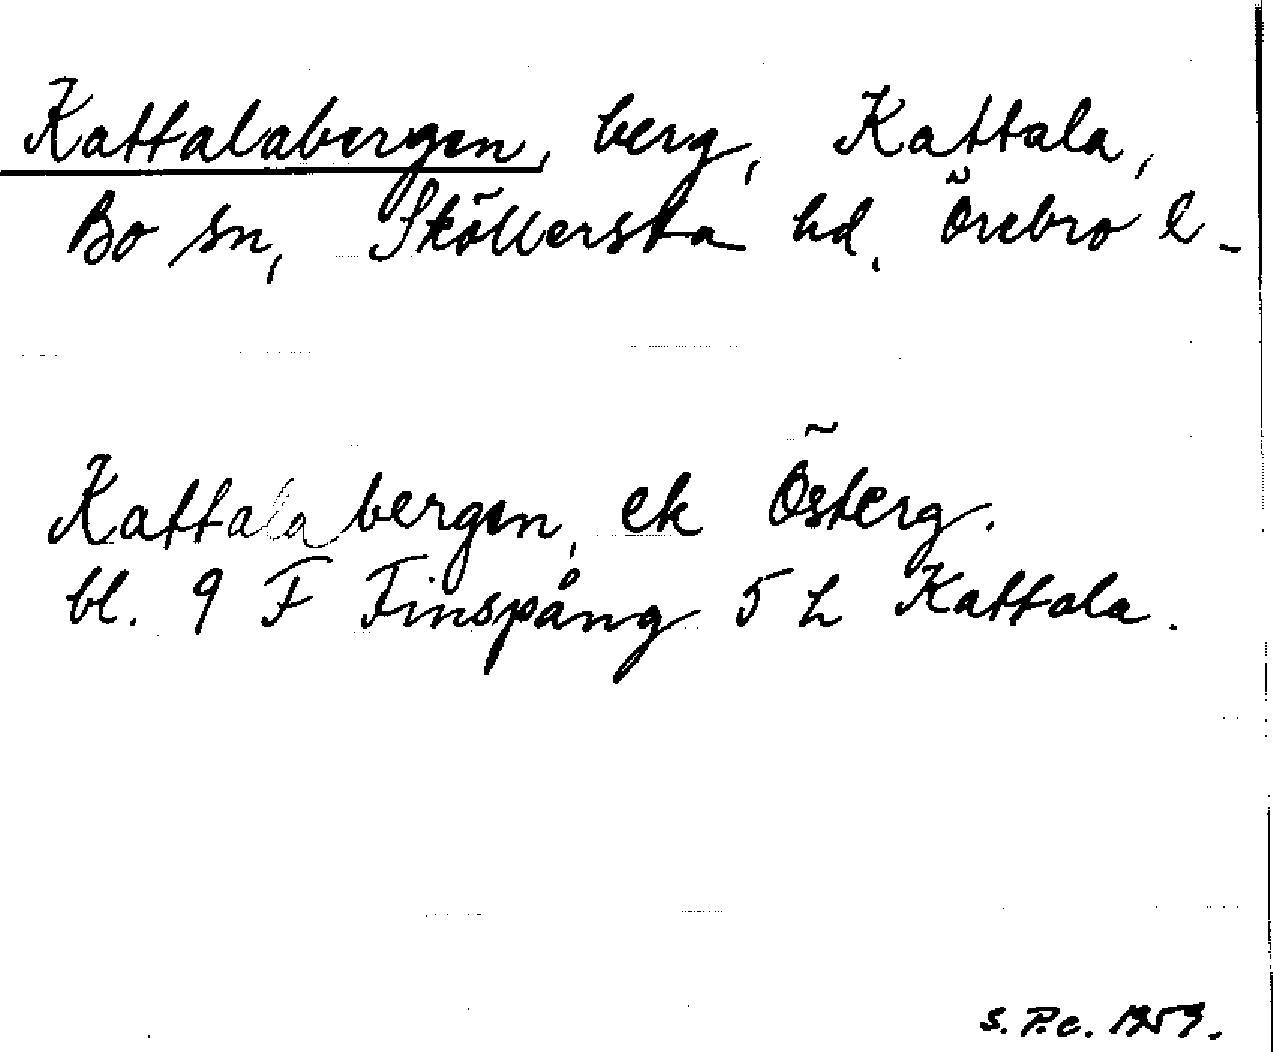 Kattalabergen, berg, Kattala,
Bo sn, Sköllersta hd. Örebro l-
Kattalabergen, ek Österg.
bl. 9 F Finspång 5 h Kattala.
S.P.c. 1959.